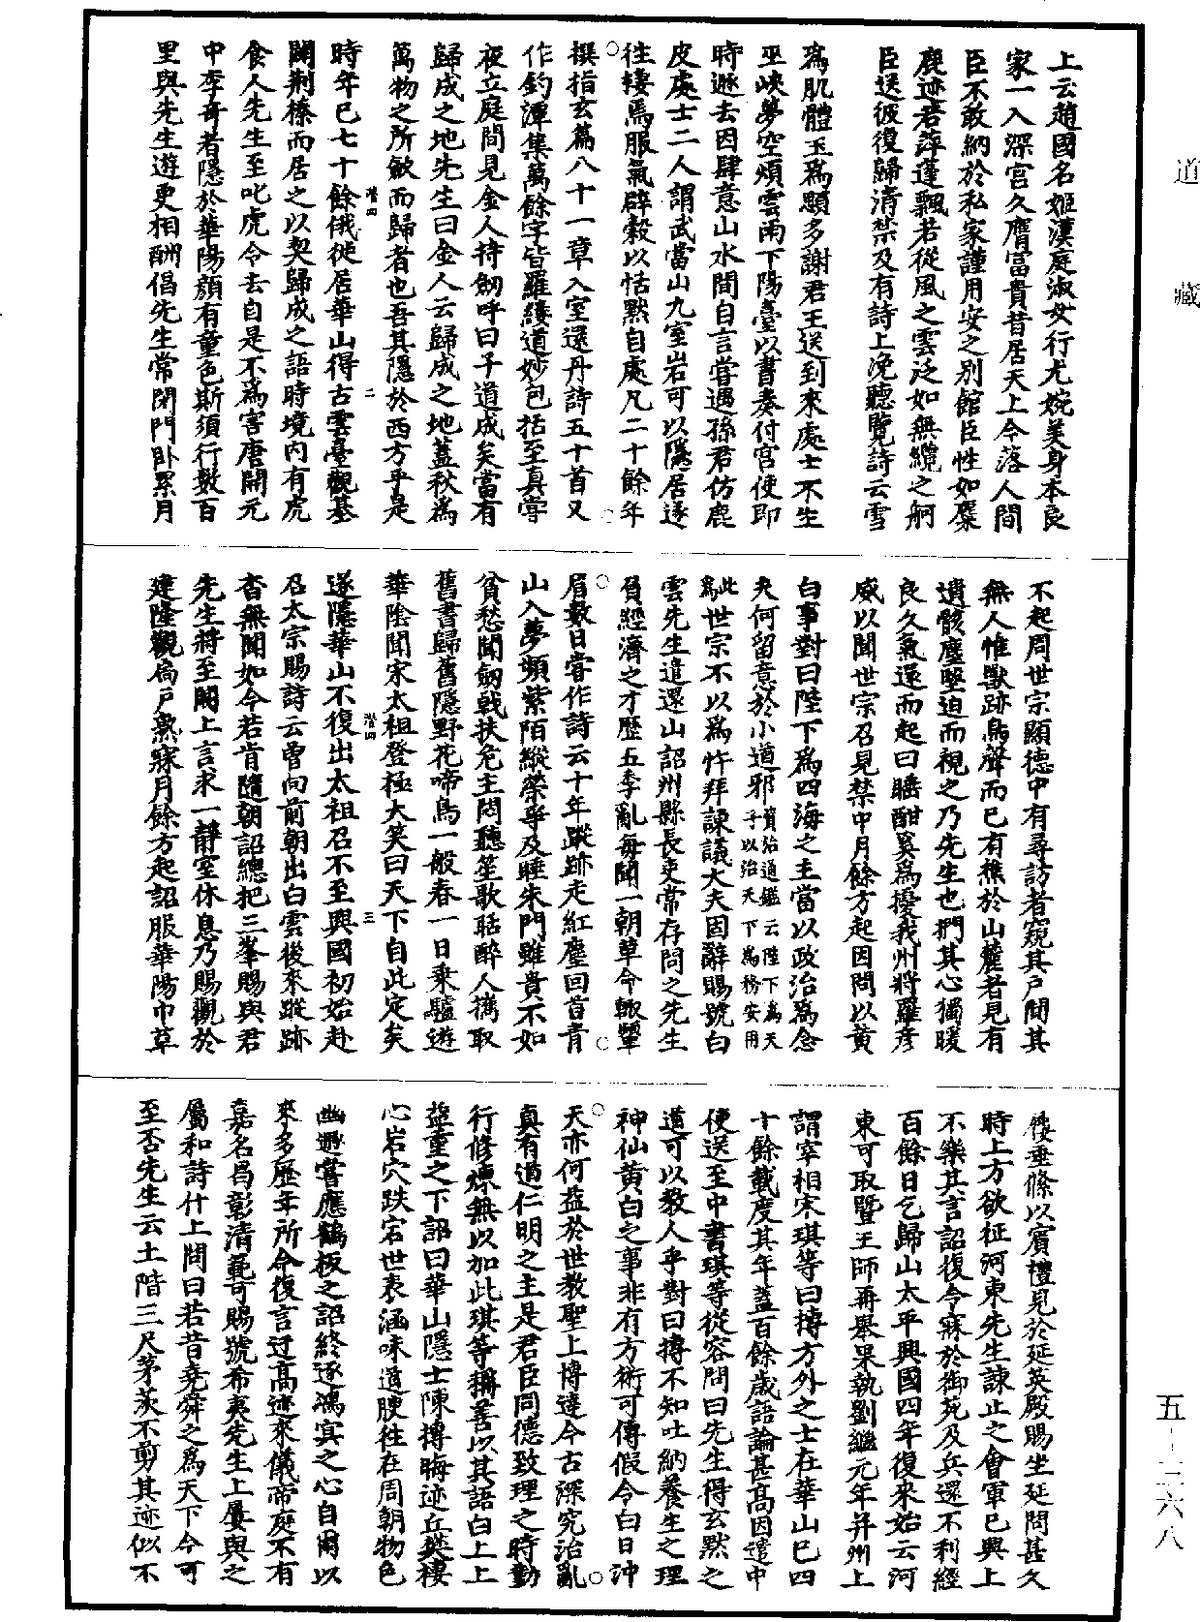 道藏
上云趙國名姬漢庭淑女行尤婉美身本良
家一入深宮久膺富貴昔居天上今落人間
臣不敢納於私家謹用安之別館臣性如麋
鹿迹若萍蓬飄若從風之雲泛如無纜之舸
臣送彼復歸清禁及有詩上浼聽覽詩云雪
為肌體玉為顋多謝君王送到來處士不生
巫峽夢空煩雲雨下陽臺以書奏付宮使即
時遯去因肆意山水間自言嘗遇孫君仿鹿
皮處士二人謂武當山九室岩可以隱居遂
往棲焉服氣辟穀以恬默自處凡二十餘年
撰指玄篇八十一章入室還丹詩五十首又
作釣潭集萬餘字皆羅縷道妙包括至真嘗
夜立庭間見金人持劒呼曰子道成矣當有
歸成之地先生曰金人云歸成之地蓋秋為
萬物之所斂而歸者也吾其隱於西方乎是
潛四 二
時年已七十餘俄徙居華山得古雲臺觀基
闢荆榛而居之以契歸成之語時境內有虎
食人先生至叱虎令去自是不為害唐開元
中李奇者隱於華陽顏有童色斯須行數百
里與先生遊更相酬倡先生常閉門卧累月
不起周世宗顯德中有尋訪者窺其戶閴其
無人惟獸跡鳥聲而已有樵於山麓者見有
遺骸塵堅迫而視之乃先生也捫其心獨暖
良久氣還而起曰睡酣奚為擾我州將羅彥
威以聞世宗召見禁中月餘方起因問以黃
白事對曰陛下為四海之主當以政治為念
夫何留意於小道邪資治通鑑云陛下為天子以治天下為務安用
此為世宗不以為忤拜諫議大夫固辭賜號白
雲先生遣還山詔州縣長吏常存問之先生
負經濟之才歷五季亂每聞一朝草命輙顰
眉數日嘗作詩云十年蹤跡走紅塵回首青
山入夢頻紫陌縱榮爭及睡朱門雖貴不如
貧愁聞劒戟扶危主悶聽笙歌聒醉人擕取
舊書歸舊隱野花啼鳥一般春一日乘驢遊
華陰聞宋太祖登極大笑曰天下自此定矣
潛四 三
遂隱華山不復出太祖召不至興國初始赴
召太宗賜詩云曾向前朝出白雲後來蹤跡
杳無聞如今若肯隨朝詔總把三峯賜與君
先生將至闕上言求一靜室休息乃賜觀於
建隆觀扃戶熟寐月餘方起詔服華陽巾草
屨垂絛以賓禮見於延英殿賜坐延問甚久
時上方欲征河東先生諫止之會軍已興上
不樂其言詔復令寐於御苑及兵還不利經
百餘日乞歸山太平興國四年復來始云河
東可取暨王師再舉果執劉繼元年并州上
謂宰相宋琪等曰摶方外之士在華山已四
十餘載度其年蓋百餘歲語論甚高因遣中
使送至中書琪等從容問曰先生得玄默之
道可以教人乎對曰摶不知吐納養生之理
神仙黃白之事非有方術可傳假令白日沖
天亦何益於世教聖上博達今古深究治亂
真有道仁明之主是君臣同德致理之時勤
行修煉無以加此琪等稱善以其語白上上
益重之下詔曰華山隱士陳摶晦迹丘樊棲
心岩穴跌宕世表涵味道腴往在周朝物色
幽遯嘗應鶴板之詔終逐鴻㝠之心自爾以
來多歷年所今復言迂高迹來儀帝庭不有
嘉名曷彰清範可賜號希夷先生上屢與之
屬和詩什上問曰若昔堯舜之為天下今可
至否先生云土階三尺茅茨不剪其迹似不
五-三六八